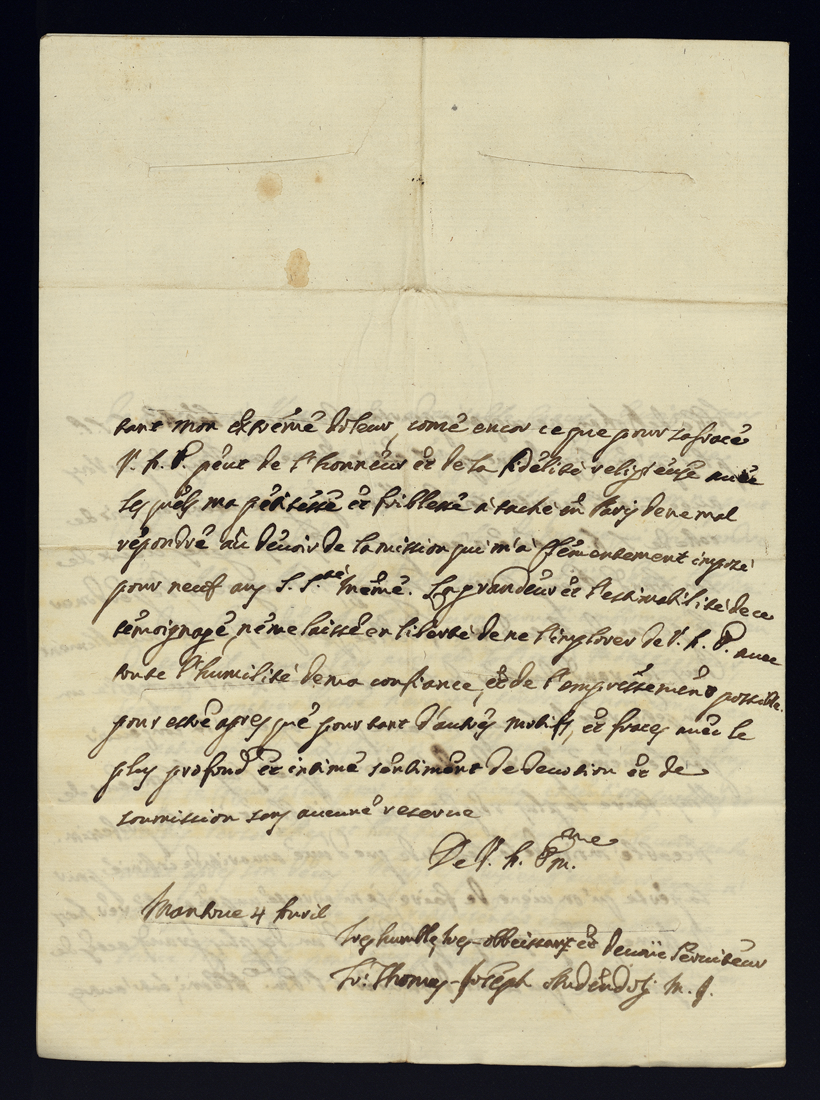 tant mon extréme doleur, comé encor ce que pour la grace
V. h. P. peut de l'honneur et de la fidélité religieuse avec
les quels ma petitesse et foiblesse a taché en de ne mal
répondré au devoir de la mission qui m'a clémentement imposé
pour neuf ans S. S.té méme. La grandeur et l'estimabilité de ce
témoignage, ne me laisse en liberté de ne l'implorer de V. h. P. avec
toute l'humilité de ma confiance, et de l'empressement possible.
pour estre apres qué pour tant d'autres motifs, et graces avec le
plus profond et intime sentiment de devotion et de
soumission sans aucune reserve
De V. h. Em.me
Mantoue 4 Avril
tres humble, tres-obbeissant et devoüe Serviteur
Fr: Thomas-Joseph M. J.